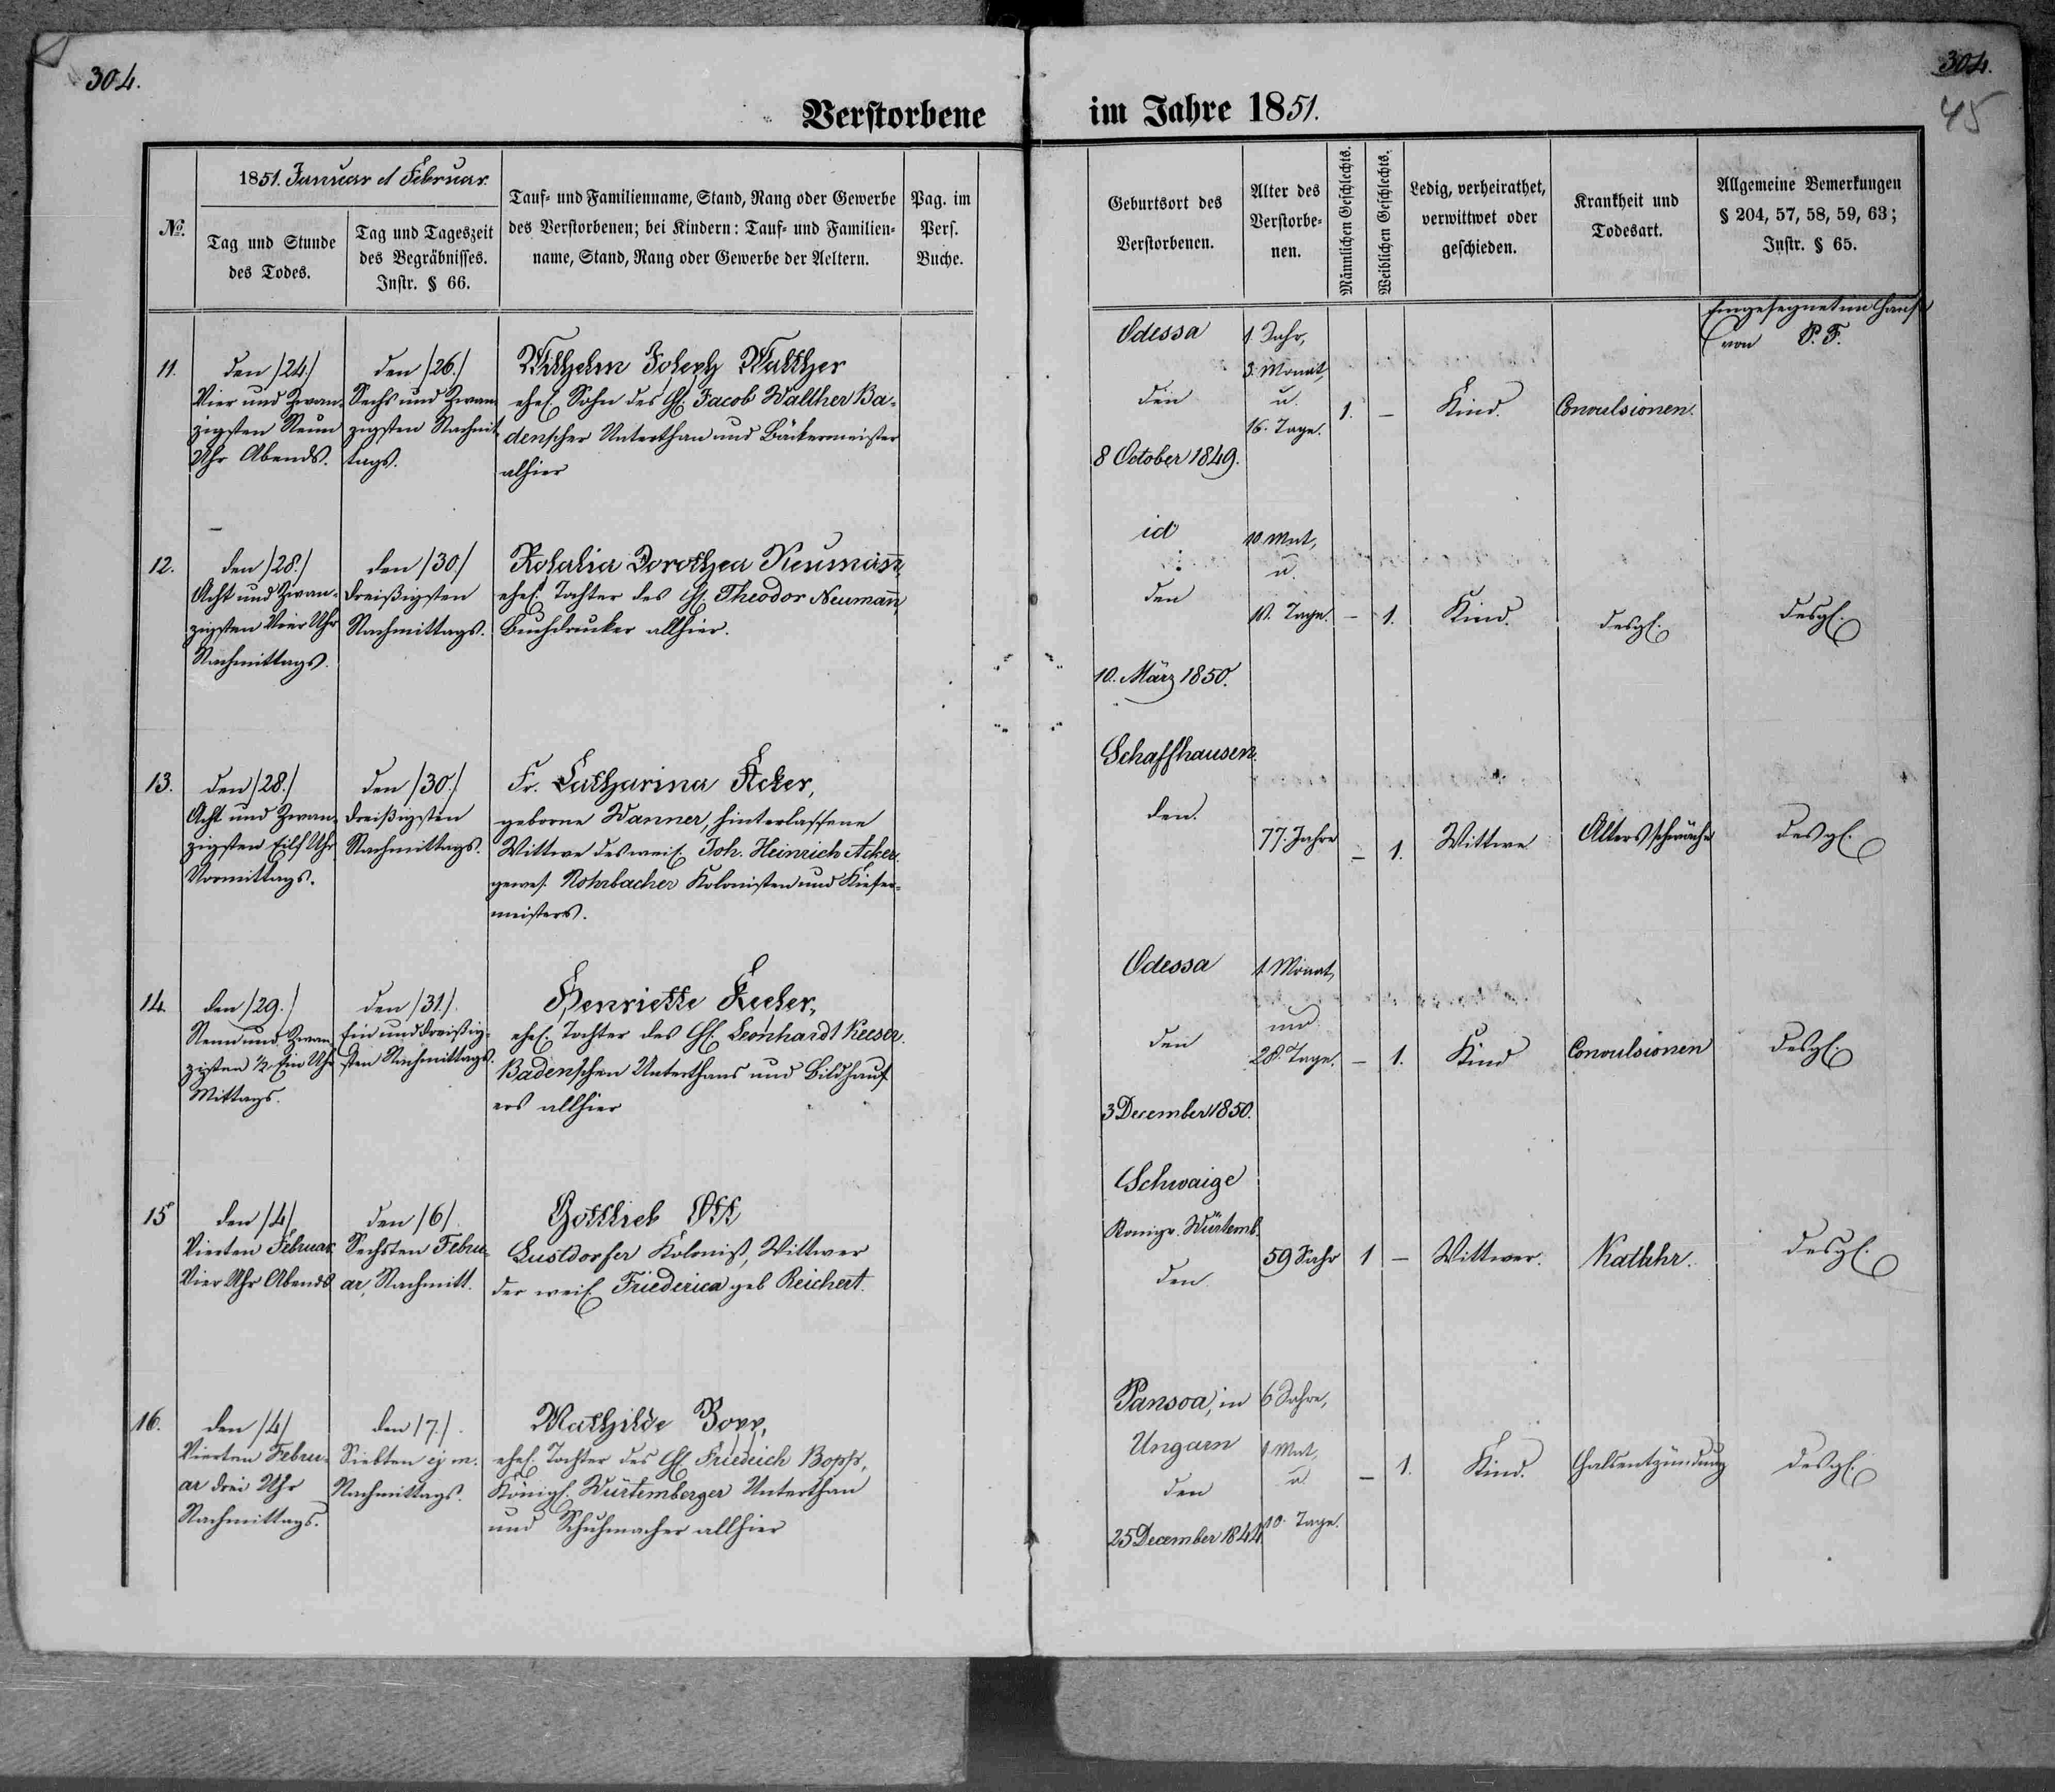 304.
304.
45
Verstorbene im Jahre 1851.
No.
1851. Januar et Februar.
Tag und Stunde
des Todes.
Tag und Tageszeit
des Begräbnisses.
Instr. § 66.
Tauf- und Familienname, Stand, Rang oder Gewerbe
des Verstorbenen; bei Kindern: Tauf- und Familien-
name, Stand, Rang oder Gewerbe der Aeltern.
Pag. im
Pers.
Buche.
Geburtsort des
Verstorbenen.
Alter des
Verstorbe-
nen.
Männlichen Geschlechts.
Weiblichen Geschlechts.
Ledig, verheirathet,
verwittwet oder
geschieden.
Krankheit und
Todesart.
Allgemeine Bemerkungen
§ 204, 57, 58, 59, 63;
Instr. § 65.
11.
den /24./
Vier und Zwan-
zigsten Neun
Uhr Abends.
den /26./
Sechs und Zwan
zigsten Nachmit
tags.
Wilhelm Joseph Walther
ehel. Sohn des H. Jacob Walther Ba-
denscher Unterthan und Bäckermeister
alhier
Odessa
den
8 October 1849.
1 Jahr,
3. Monat,
u.
16. Tage.
1.
–
Kind.
Convulsionen.
Eingesegnet im Hause
von P. F.
12.
den /28./
Acht und Zwan-
zigsten Vier Uhr
Nachmittags.
den /30./
Dreißigsten
Nachmittags.
Rosalia Dorothea Neumañ,
ehel. Tochter des H. Theodor Neumañ,
Buchdrucker allhier.
id
den
10. März 1850.
10. Mnt,
u.
18. Tage.
–
1.
Kind.
desgl.
desgl.
13.
den /28./
Acht und Zwan-
zigsten Eilf Uhr
Vormittags.
den /30./
Dreißigsten
Nachmittags.
Fr. Catharina Acker,
geborne Wanner, hinterlassene
Wittwe des weil. Joh. Heinrich Acker.
gewes. Rohrbacher Kolonisten und Kiefer-
meisters.
Schaffhausen.
den.
77. Jahre
–
1.
Wittwe
Altersschwäche
desgl.
14.
den /29./
Neun und Zwan
zigsten 1/2 Ein Uhr
Mittags.
den /31/.
Ein und dreißig-
sten Nachmittags.
Henriette Keeser,
ehel. Tochter des H. Leonhardt Keeser.
Badenschen Unterthans und Bildhau
ers allhier
Odessa
den
3 December 1850.
1 Monat,
und
28. Tage.
–
1.
Kind
Convulsionen
desgl.
15
den /4/
Vierten Februar
Vier Uhr Abends
den /6/.
Sechsten Febru-
ar, Nachmitt.
Gottlieb Ott
Lustdorfer Kolonist, Wittwer
der weil. Friederica geb Reichert.
Schwaige
Königr. Würtemb.
den
59 Jahr
1
–
Wittwer.
Kathhr.
desgl.
16.
den /4/
Vierten Febru-
ar drei Uhr
Nachmittags.
den /7./.
Siebten ej m.
Nachmittags.
Mathilde Bopp,
ehel. Tochter des H. Friedrich Bopp,
Königl. Würtemberger Unterthan
und Schuhmacher allhier
Pansoa, in
Ungarn
den
25 December 1844.
6 Jahre,
1 Mnt,
u.
10. Tage.
–
1.
Kind.
Halsentzündung
desgl.